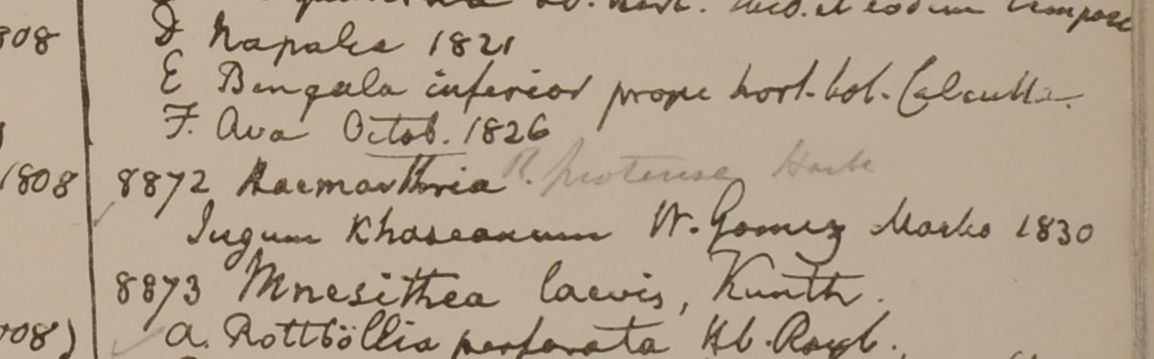 308
D Napalia 1821
E Bengala inferior prope hort. bot. Calcutta.
F. Ava Octob. 1826
1808
8872 Haemarthria R. protensa Hack
Jugum Khaseanum W. Gomez Marko 1830
8873 Mnesithea laevis, Kunth.
008)
a. Rottböllia perforata Hb. Roxb.